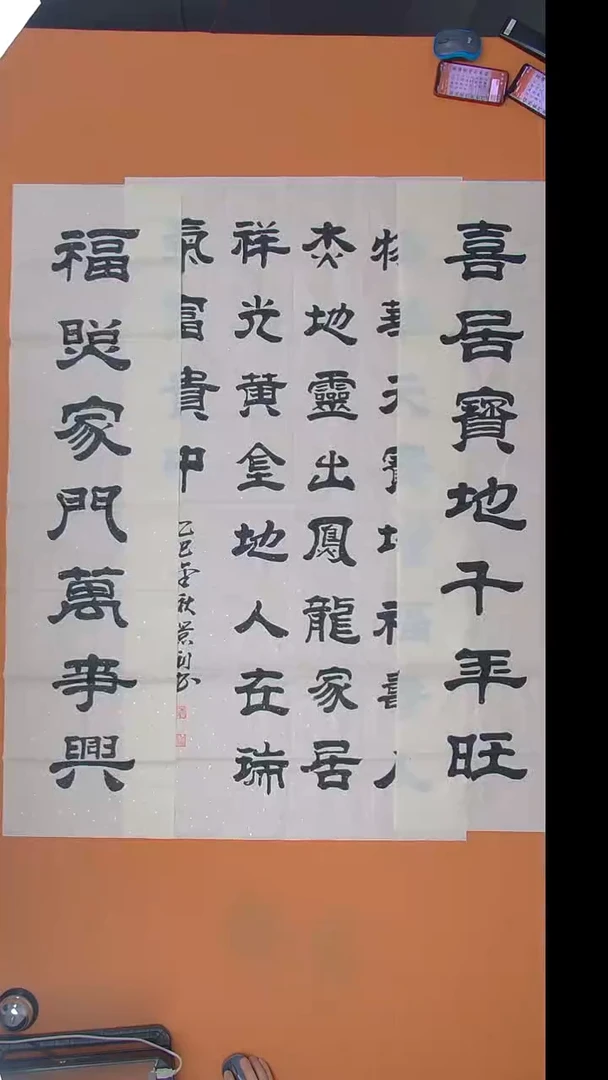 喜居寶地千年旺
物華天寶地福喜人
杰地靈出鳳龍家居
祥光黃金地人在瑞
氣富貴中
乙巳金秋
福照家門萬事興